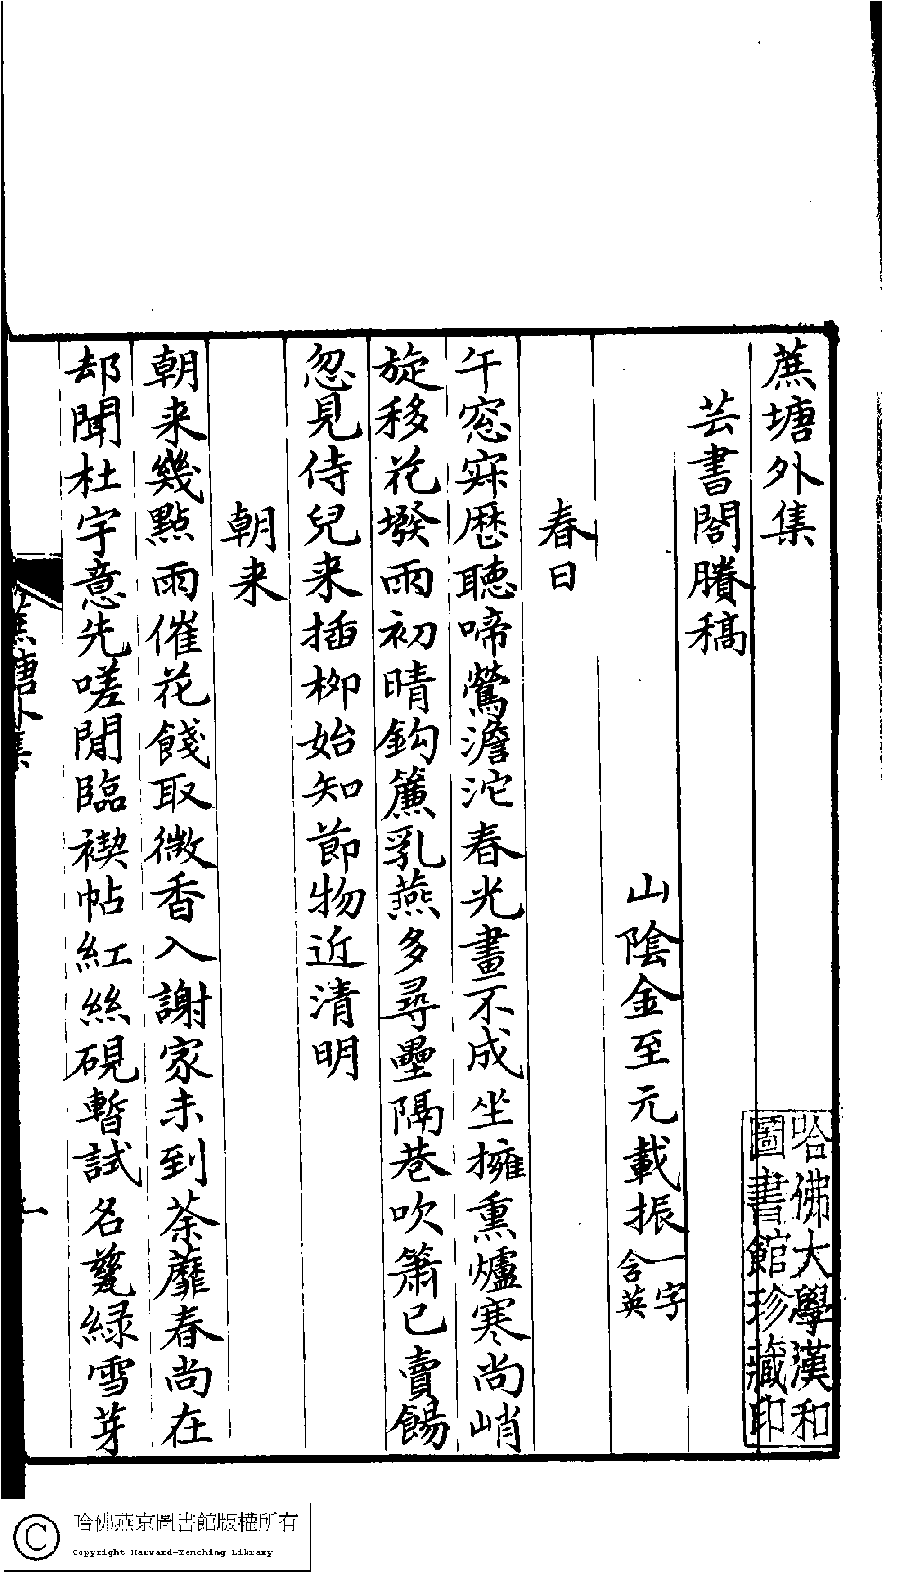 蕉塘外集
芸書閣賸稿
山陰金至元載振一字含英
春日
午窓寂歷聽啼鶯澹沱春光畫不成坐擁熏爐寒尚峭
旋移花墢雨初晴鈎簾乳燕多尋壘隔巷吹簫已賣餳
忽見侍兒来插栁始知節物近清明
朝来
朝来幾點雨催花餞取微香入謝家未到荼蘼春尚在
却聞杜宇意先嗟閒臨禊帖紅絲硯暫試名甆緑雪芽
蕉塘外集
一
哈佛大學漢和
圖書館珍藏印
哈佛燕京圖書館版權所有
Copyright Harvard-Yenching Library